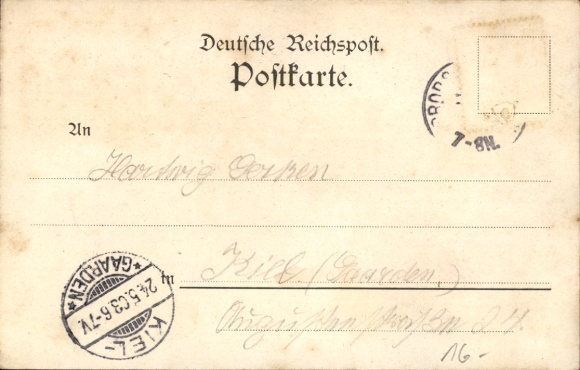 Deutsche Reichspost.
Postkarte.
7-8N.
An
Hartwig
Kiel. (Gaarden.)
in
Augustenstraße 24.
KIEL-
24.5.03.6-7V.
*GAARDEN*
16-